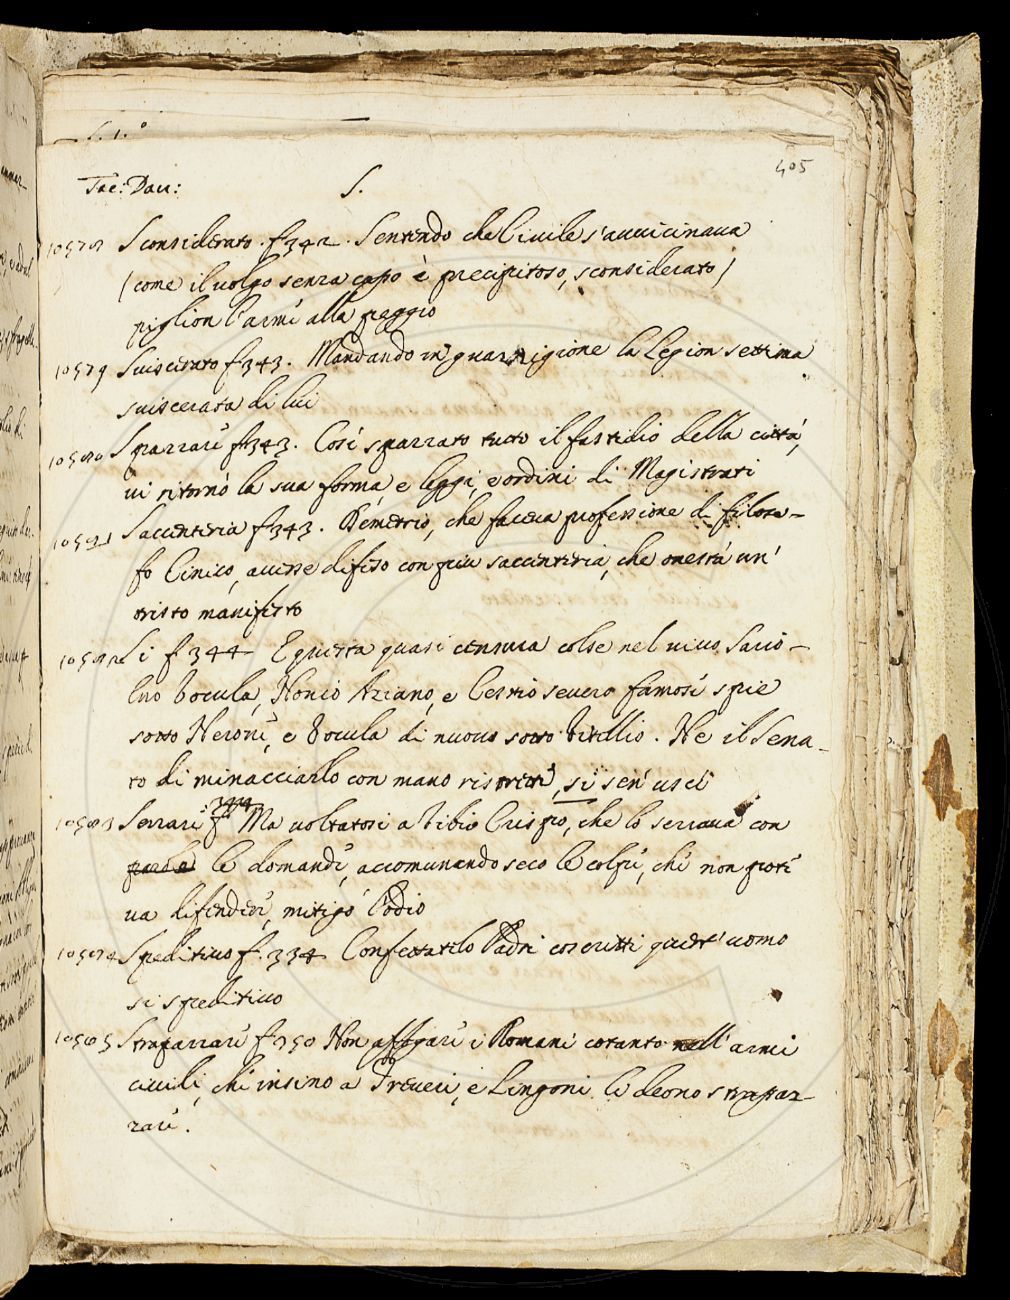 405
Tac: Dau: S.
10578 Sconsiderato. f 342. Sentendo che Civile s'avvicinava
(come il volgo senza capo è precipitoso, sconsiderato)
piglion l'armi alla peggio
10579 Sviscerato f 343. Mandando in guarnigione la legion settima
sviscerata di lui
10580 Sparzare f 343. Cosi sparzato tutto il fastidio della città,
vi ritornò la sua forma, e leggi, e ordini di Magistrati
10581 Saccenteria f 343. Demetrio, che faceva professione di filoso-
fo Cinico, avesse difeso con piu saccenteria, che onestà un'
tristo manifesto
10582 Si f 344 E questa quasi censura colse nel vivo, Sario-
leno Vocula, Nonio Aziano, e Cestio severo famosi spie
sotto Nerone, e Vocula di nuovo sotto Vitellio. Ne il Sena-
to di minacciarlo con mano ristette, si sen' uscì
10583 Serrare f 344 Ma voltatosi a Vibio Crispo, che lo serrava con
le domande, accomunando seco le colpe, che non pote
va difendere, mitigò l'odio
10584 Speditivo f. 334 Confettatelo Padri coscritti quest' uomo
si speditivo
10585 Strapazzare f 350 Non affogare i Romani cotanto nell' armi
civili, che insino a Treveri, e Lingoni li deono strapaz-
zare.